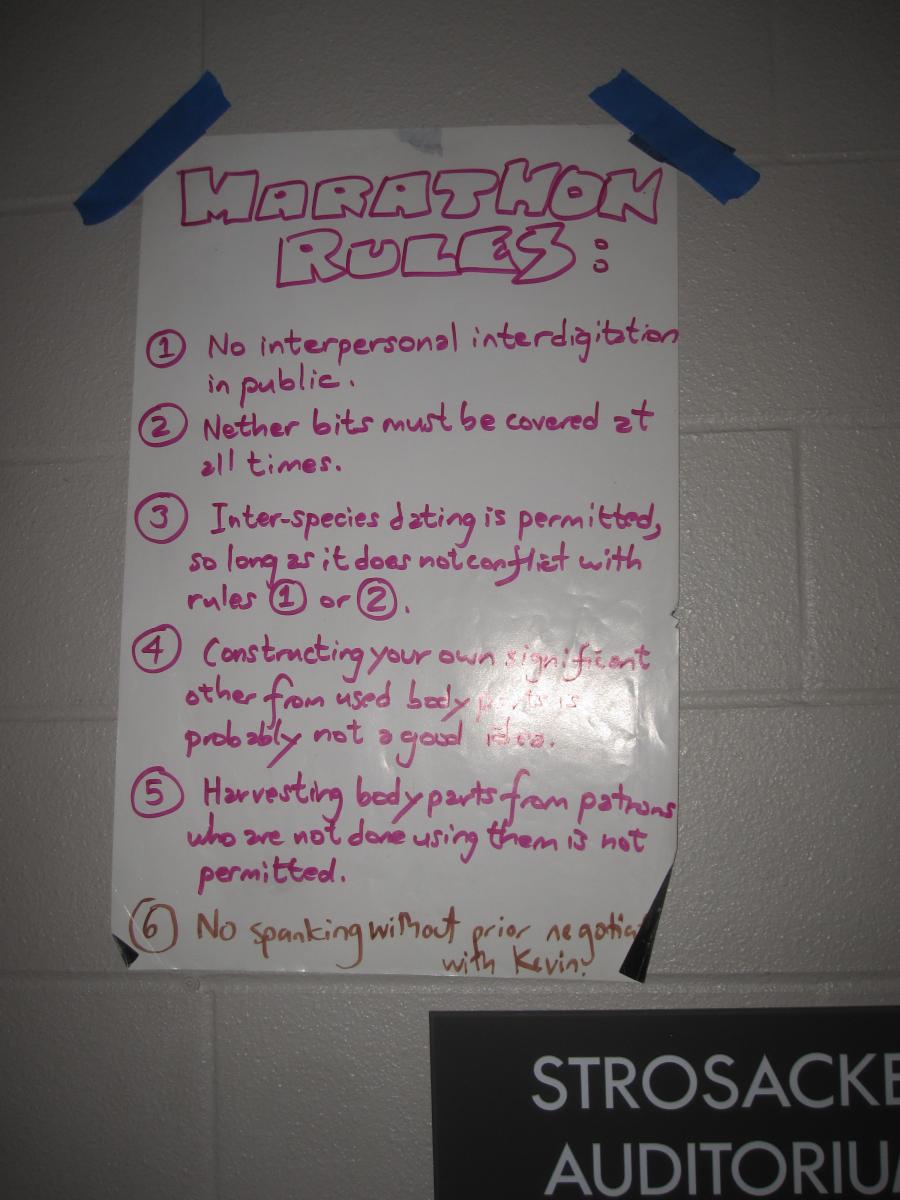 MARATHON
RULES:
1 No interpersonal interdigitation
in public.
2 Nether bits must be covered at
all times.
3 Inter-species dating is permitted,
so long as it does not conflict with
rules 1 or 2.
4 Constructing your own significant
other from used body parts is
probably not a good idea.
5 Harvesting body parts from patrons
who are not done using them is not
permitted.
6 No spanking without prior negotiat
with Kevin.
STROSACKE
AUDITORIU